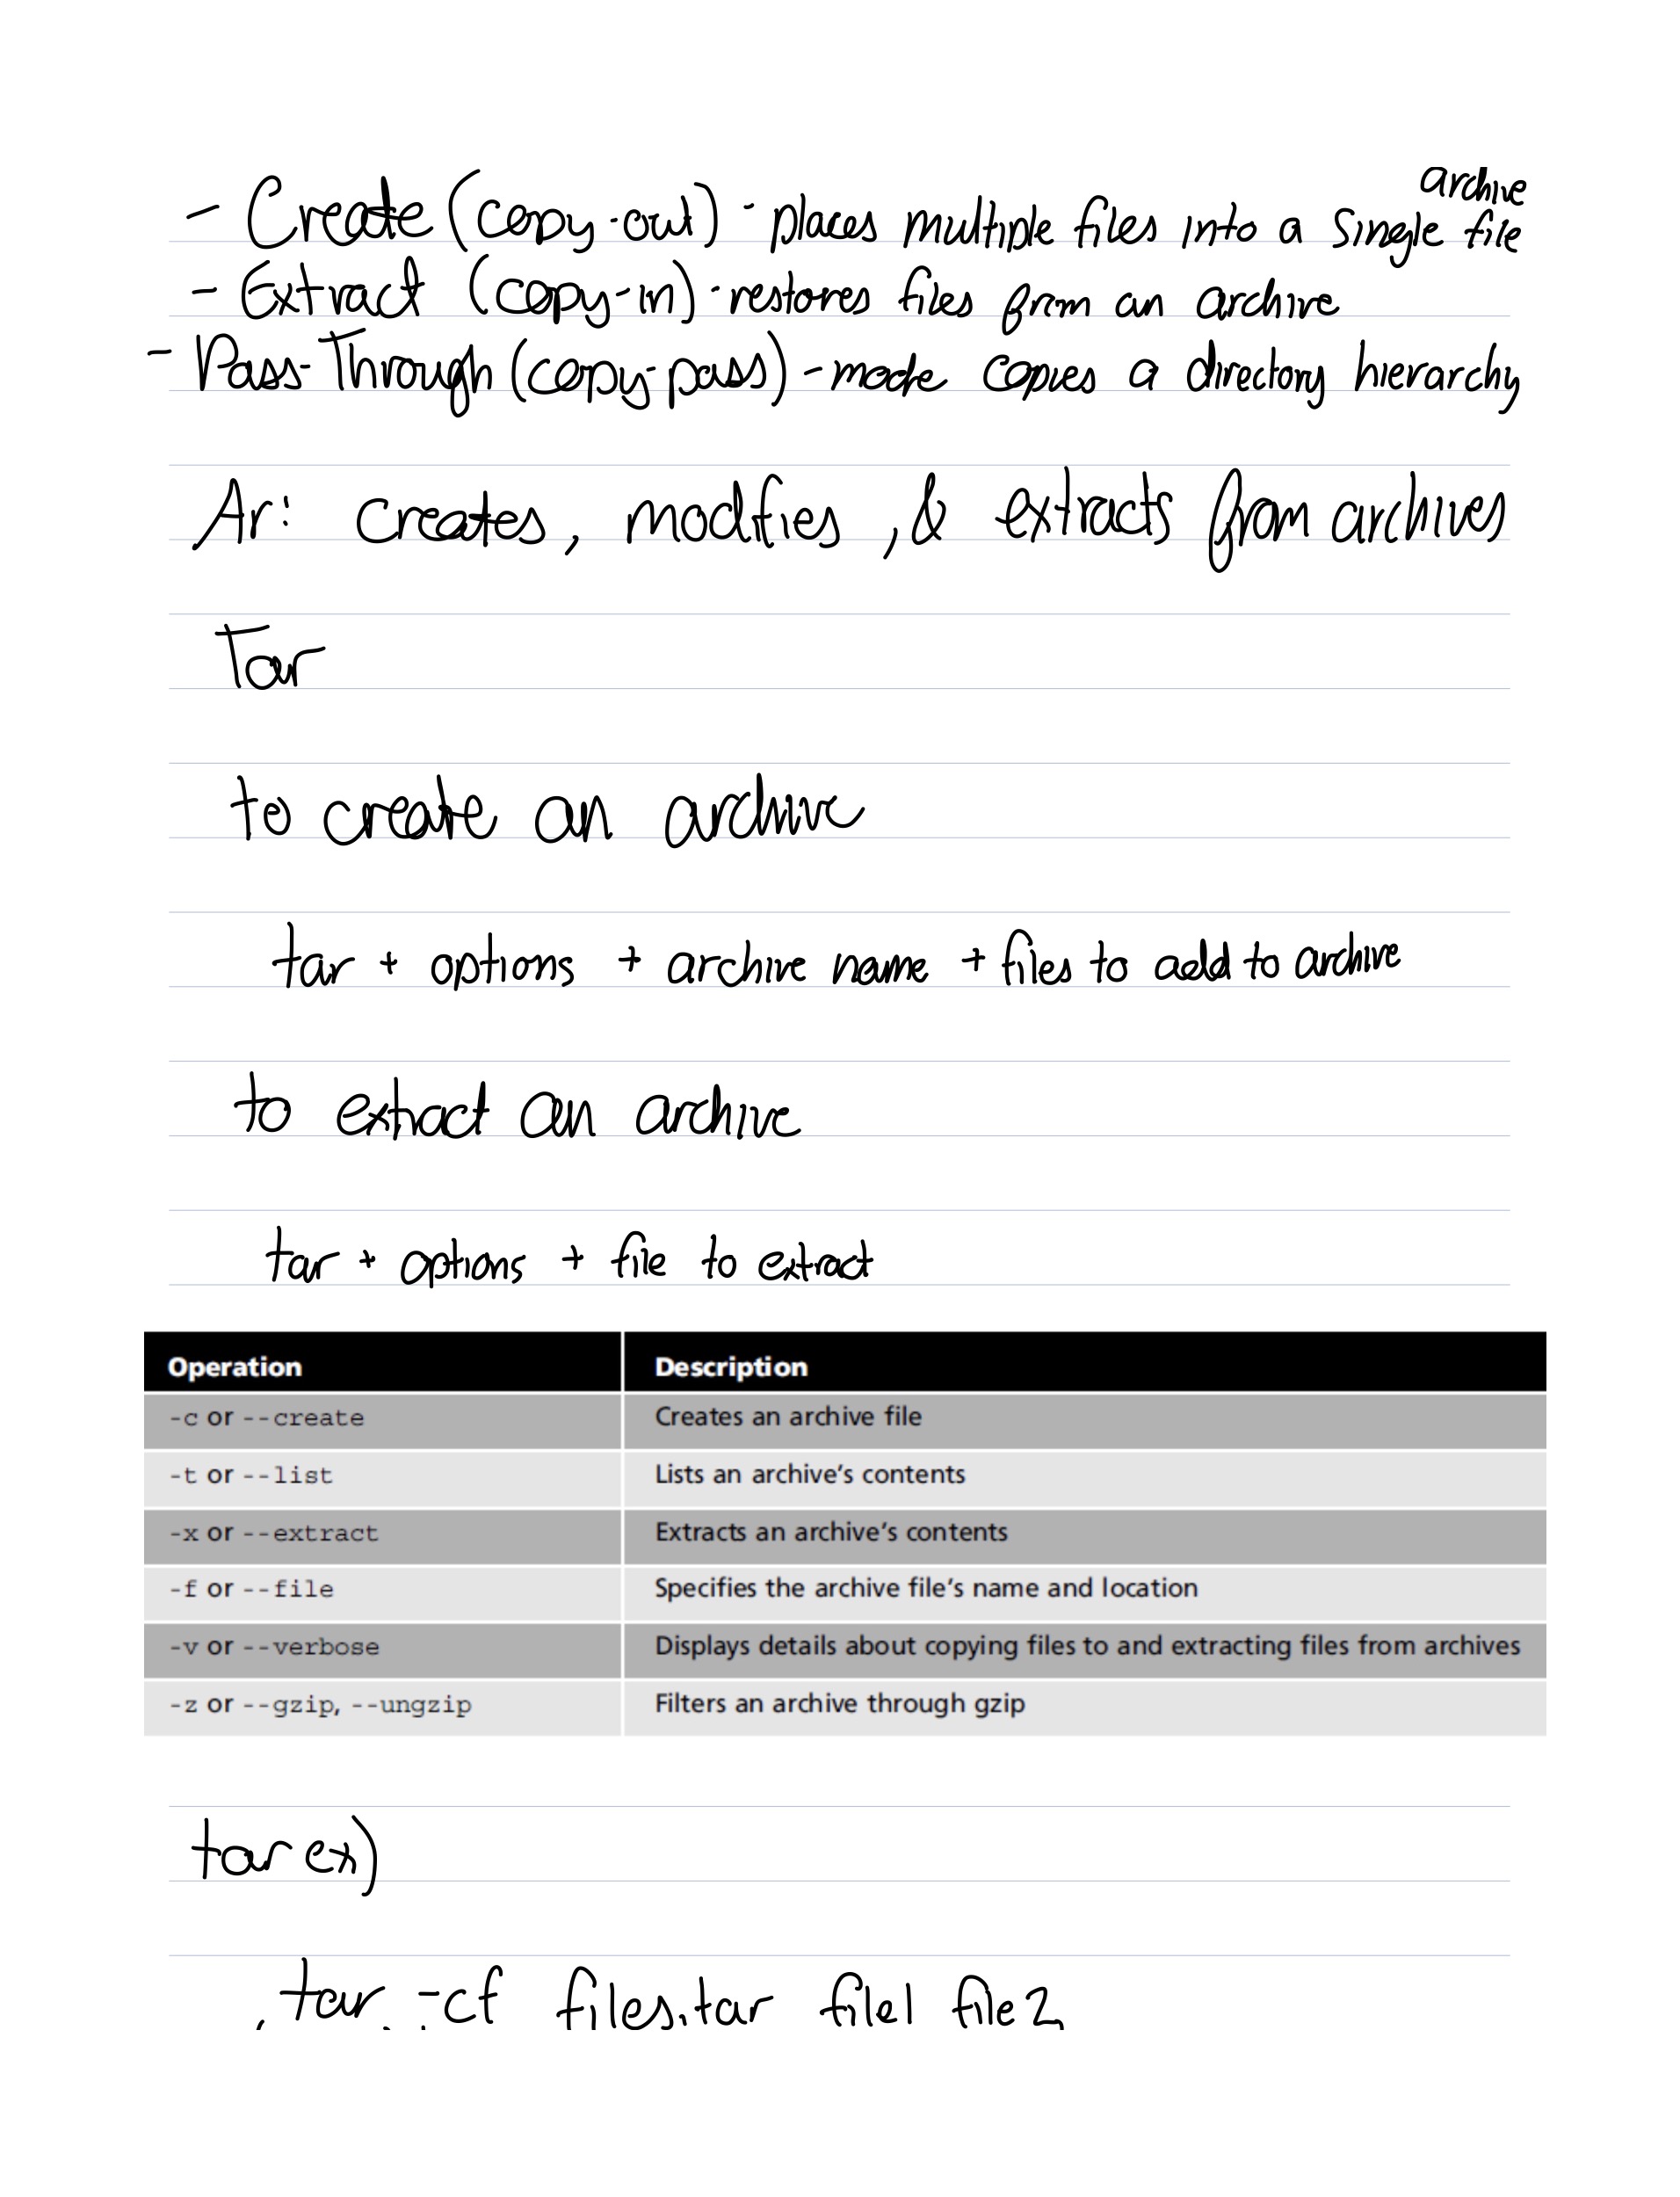 - Create (copy-out) - places multiple files into a single archive file
- Extract (copy-in) - restores files from an archive
- Pass-Through (copy-pass) - mode copies a directory hierarchy
Ar: creates, modifies, & extracts from archives
Tar
to create an archive
tar + options + archive name + files to add to archive
to extract an archive
tar + options + file to extract
Operation Description
-c or --create Creates an archive file
-t or --list Lists an archive's contents
-x or --extract Extracts an archive's contents
-f or --file Specifies the archive file's name and location
-v or --verbose Displays details about copying files to and extracting files from archives
-z or --gzip, --ungzip Filters an archive through gzip
tar ex)
tar -cf files.tar file1 file2